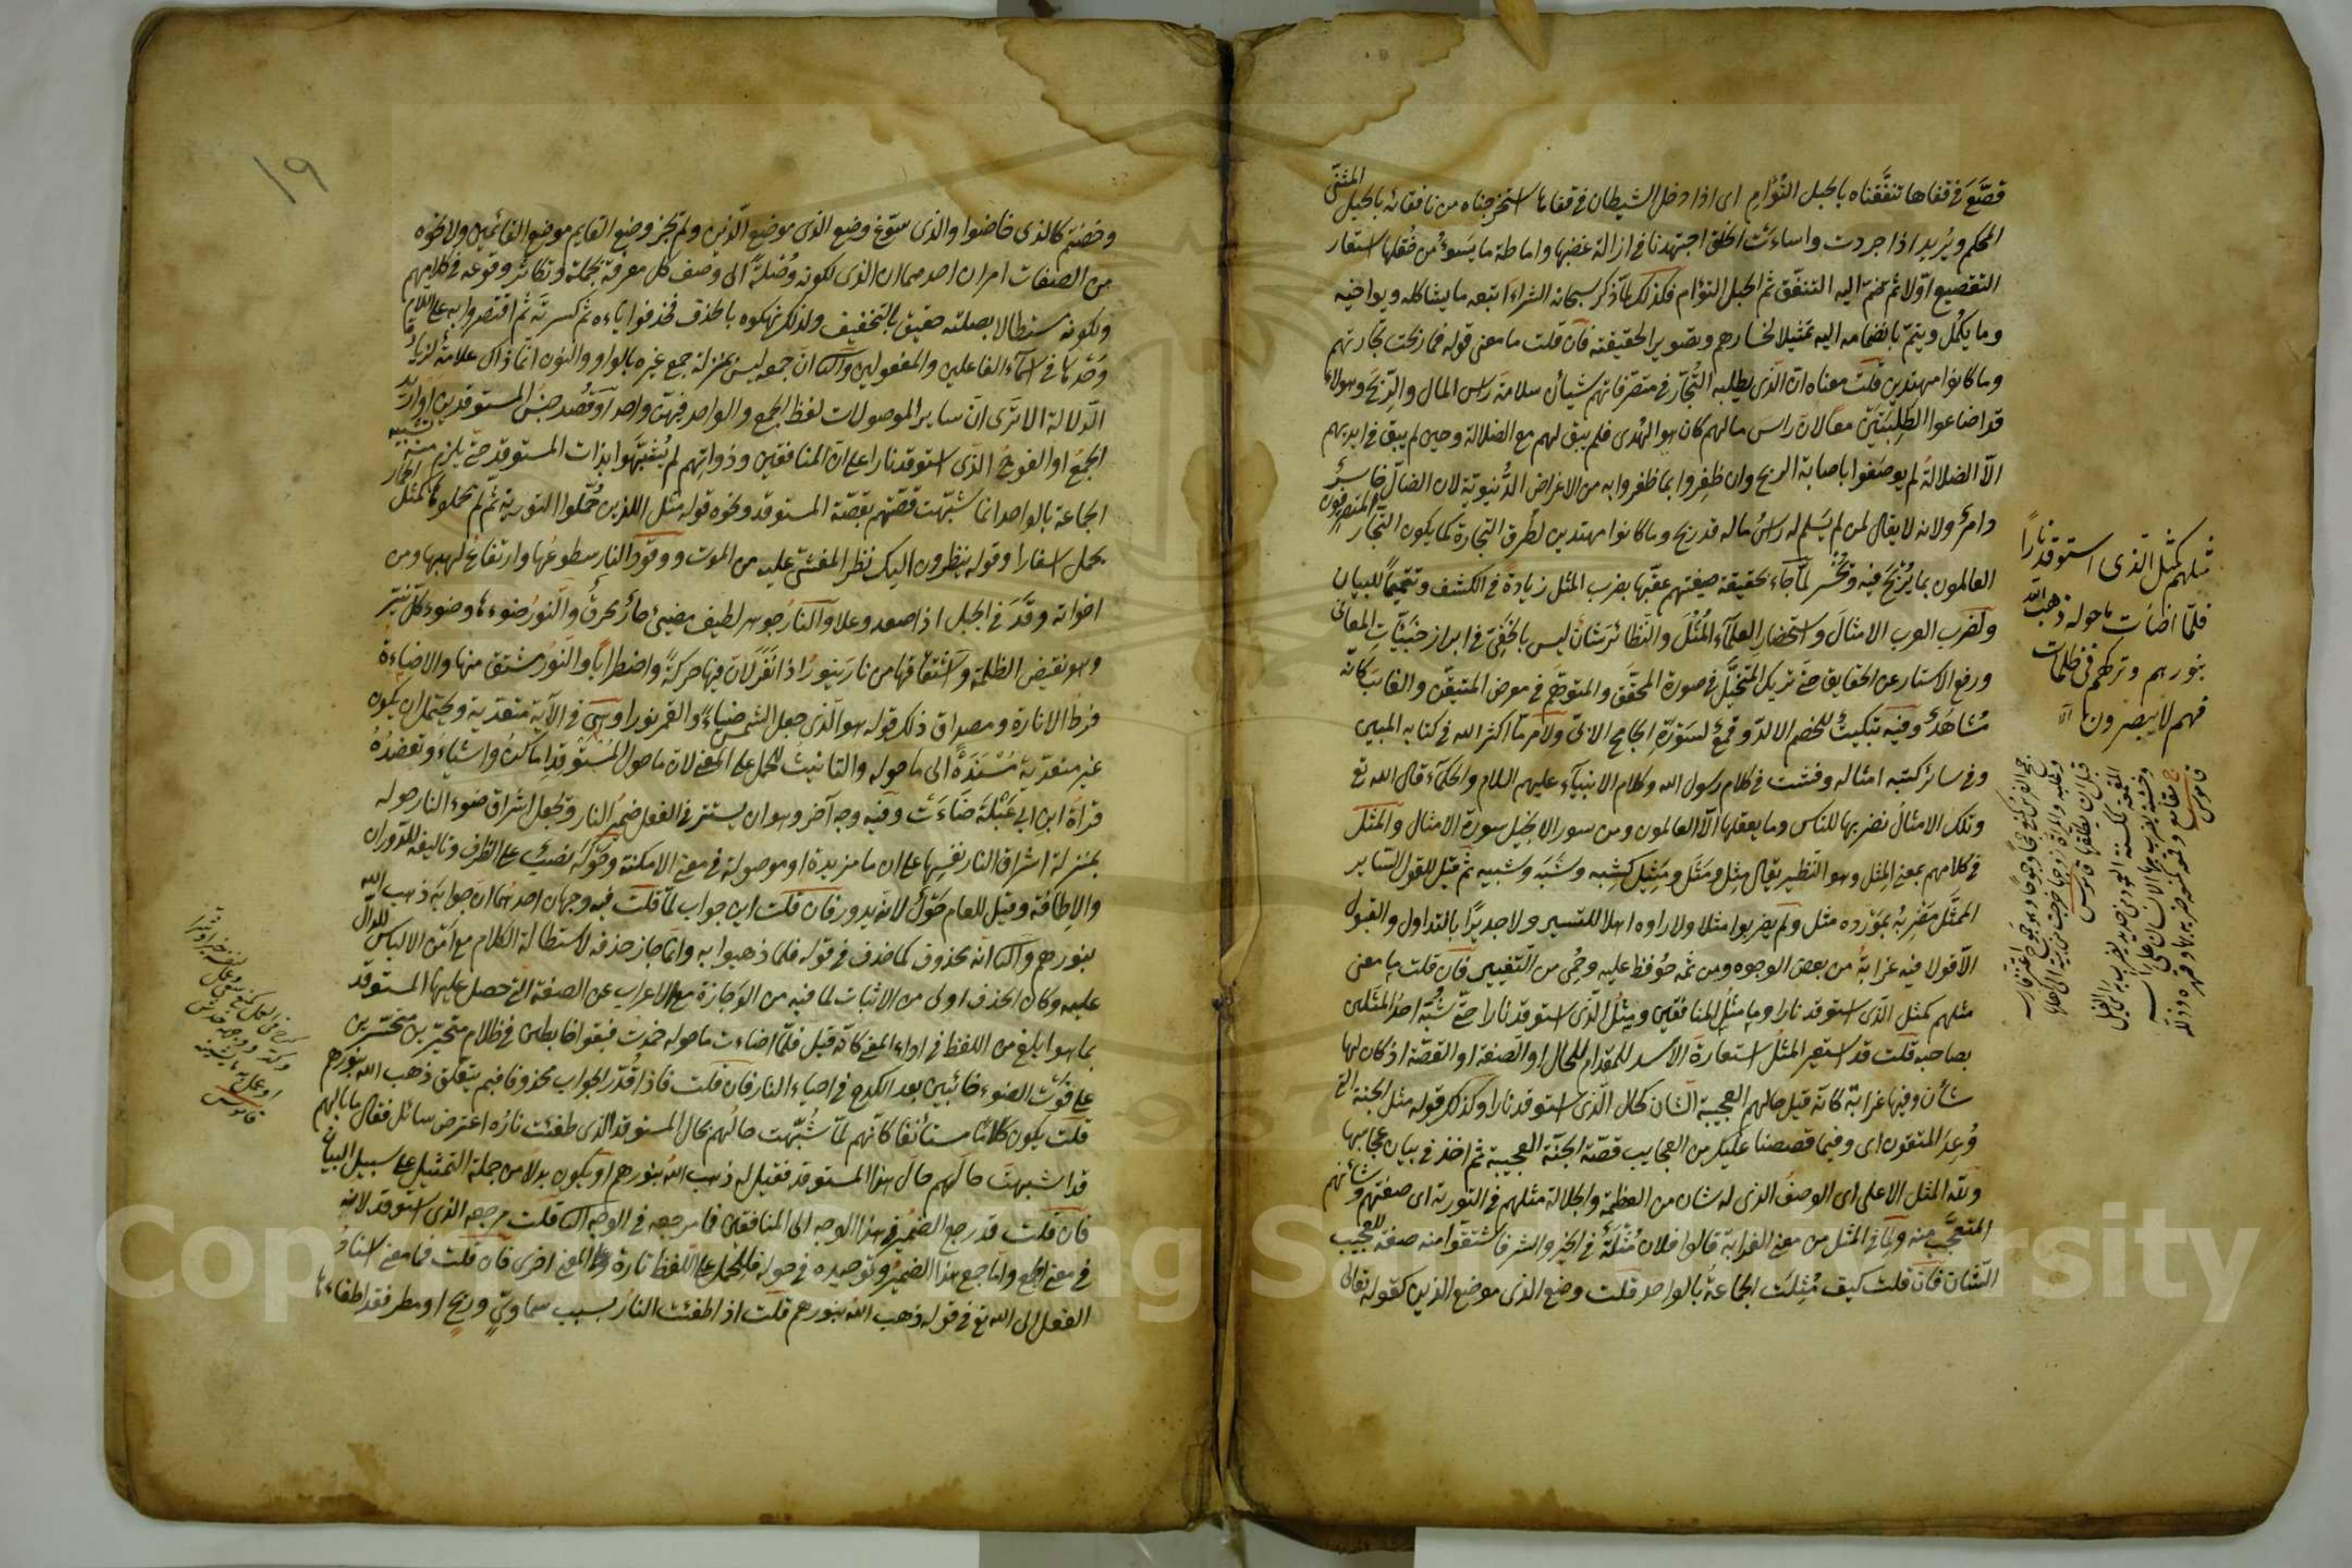 قصّع في قفاها تنفّقناه بالحبل التُؤام اى اذا دخل الشيطان في قفاها استخرجناه من نافقائه بالحبل المثنى
المحكم ويُريد اذا حردت واساءَت الخلق اجتهدنا في ازالة غضبها واماطة ما يَسوءُ من خُلقها استعار
التقصيع اوّلا ثم ضمّ اليه التنفّق ثم الحبل التؤام فكذلك لمّا ذكر سبحانه الشراءَ اتبعه ما يشاكله ويواخيه
وما يكمُل ويتمّ بانضمامه اليه تمثيلا لخسارهم وتصويرا لحقيقته فان قلت ما معنى قوله فما ربحت تجارتهم
وما كانوا مهتدين قلت معناه انّ الذى يطلبه التُجّار في متصرفاتهم شيأن سلامة راس المال والرّبح وهولاء
قد اضاعوا الطلبتين معًا لان راس مالهم كان هو الهُدى فلم يبق لهم مع الضلالة وحين لم يبق في ايديهم
الّا الضلالةُ لم يوصَفوا باصابة الربح وان ظفِروا بما ظفروا به من الاغراض الدُّنيوية لان الضالّ خاسِرٌ
دامرٌ ولانه لا يقال لمن لم يسَلم له راسُ ماله قد ربح وما كانوا مهتدين لطُرق التجارة كما يكون التجّار المتصرفون
العالمون بما يُربَحُ فيه ويُخْسَر لمّا جاء بحقيقة صفتهم عقّبها بضرب المثل زيادةً في الكشف وتتميمًا للبيان
ولضرب العرب الامثالَ واستحضار العلماء المُثُلَ والنظائر شانٌ ليس بالخفىّ في ابراز خبيّات المعانى
ورفع الاستار عن الحقايق حتى تريك المتخيَّل في صورة المحقّق والمتوهّم في معرض المتيقّن والغائب كانّه
مُشاهَدٌ وفيه تبكيتٌ للخصم الالدّ وقمعٌ لسَورة الجامح الابىّ ولامرٍ ما اكثر الله في كتابه المبين
وفى سائر كتبه امثاله وفشت في كلام رسول الله وكلام الانبياء عليهم السلام والحكماء قال الله تع
وتلك الامثالُ نضربها للناس وما يعقلها الّا العالمون ومن سور الانجيل سورة الامثال والمثل
في كلامهم بمعنى المِثل وهو النّظير يقال مِثل ومَثَل ومَثِيل كشِبه وشَبَه وشبيه ثم قيل للقول السّاير
الممَثّل مَضربُه بمَوْرده مثل ولم يضربوا مثلا ولا راوه اهلا للتسيير ولا جديرًا بالتداول والقبول
الّا قولا فيه غرابةٌ من بعض الوجوه ومن ثمه حُوفظ عليه وحُمِى من التّغيير فان قلت ما معنى
مثلهم كمثل الذى استوقد نارا وما مثلُ المنافقين ومثلُ الذى استوقد نارا حتى شُبّه احدُ المثلين
بصاحبه قلت قد استعير المثلُ استعارةَ الاسد للمقدام للحال او الصفة او القصّة اذ كان لها
شأن وفيها غرابة كانّه قيل حالهم العجيبة الشان كحال الذى استوقد نارا وكذلك قوله مثل الجنة التى
وُعِدَ المتقون اى وفيما قصصنا عليك من العجايب قصّة الجنّة العجيبة ثم اخذ في بيان عجايبها
وللّه المثل الاعلى اى الوصفُ الذى له شان من العظمة والجلالة مثلهم في التورية اى صفتهم وشأنهم
المتعجَّب منه ولما في المثل من معنى الغرابة قالوا فلان مُثْلَةٌ في الخير والشر فاشتقّوا منه صفة للعجيب
الشان فان قلت كيف مُثِلت الجماعةُ بالواحد قلت وضع الذى موضع الذين كقوله تعالى
مثلهم كمثل الذى استوقد نارًا
فلمّا اضاءت ما حوله ذهب الله
بنورهم وتركهم في ظلمات
فهم لا يبصرون
قاموس
١٩
وخضتم كالذى خاضوا والذى سوّغ وضع الذى موضع الّذين ولم يجز وضع القايم موضع القائمين ولا نحوه
من الصفات امران احدهما ان الذى لكونه وُصْلةً الى وصف كل معرفة بجملة وتكاثر وقوعه في كلامهم
ولكونه مستطالا بصلته حقيق بالتخفيف ولذلك نهكوه بالحذف فحذفوا ياءه ثم كسرته ثم اقتصروا به على اللام
وحدها في اسماء الفاعلين والمفعولين والثا انّ جمعه ليس بمنزلة جمع غيره بالواو والنون انّما ذاك علامةٌ لزيادة
الدلالة الا ترى انّ ساير الموصولات لفظ الجمع والواحد فيهنّ واحد او قُصد جنس المستوقدين او اريد
الجمعُ او الفوجُ الّذى استوقد نارا على انّ المنافقين وذواتهم لم يُشبَّهوا بذات المستوقد حتى يلزم منه تشبيه
الجماعة بالواحد انما شبّهت قصّتهم بقصّة المستوقد ونحوه قوله مثل اللذين حُمّلوا التورية ثم لم يحملوها كمثل الحمار
يحمل اسفارا وقوله ينظرون اليك نظر المغشىّ عليه من الموت ووقود النار سطوعُها وارتفاعُ لهبها ومن
اخواته وقَدَ في الجبل اذا صعد وعلا والنارُ جوهر لطيف مضيئ حارّ محرقٌ والنّورُ ضوءها وضوء كل نيّر
وهو نقيض الظلمة واشتقاقها من نار ينور اذا نفر لانّ فيها حركةً واضطرابًا والنّور مشتق منها والاضاءة
فرط الانارة ومصداق ذلك قوله هو الّذى جعل الشمس ضياءً والقمر نورا وهى في الآية متعدية ويحتمل ان يكون
غير متعدّية مُسْنَدةً الى ما حوله والتانيث للحمل على المعنى لان ما حول المُستَوقِد اماكنُ واشياءُ وتعضدُهُ
قراة ابن ابى عَبْلةَ ضاءَت وفيه وجه آخر وهو ان يستتر في الفعل ضميرُ النار ويُجعل اشراق ضوء النار حوله
بمنزلة اشراق النار نفسِها على ان ما مزيدة او موصولة في معنى الامكنة وحَوْلَه نصبٌ على الظرف وتاليفه للدَّوران
والاطافة وقيل للعام حَوْلٌ لانه يدور فان قلت اين جواب لمّا قلت فيه وجهان احدهما ان جوابه ذهب الله
بنورهم والثا انّه محذوف كما حذف في قوله فلما ذهبوا به وانّما جاز حذفه لاستطالة الكلام مع امْن الالباس للدالّ
عليه وكان الحذف اولى من الاثبات لما فيه من الوَجازة مع الاعراب عن الصفة التى حصل عليها المستوقد
بما هو ابلغ من اللفظ في اداء المعنى كانّه قيل فلمّا اضاءت ما حوله خمدت فبقوا خابطين في ظلام متحيّرين متحسّرين
على فَوْت الضوء خائبين بعد الكدح في احياء النار فان قلت فاذا قُدّر الجواب محذوفا فبم يتعلّق ذهب الله بنورهم
قلت يكون كلامًا مستأنفا كانّهم لمّا شُبّهت حالُهم بحال المستوقد الذى طفئت نارُه اعترض سائل فقال ما بالهم
قد اشبهت حالَهم حالَ هذا المستوقد فقيل له ذهب الله بنورهم او يكون بدلا من جملة التمثيل على سبيل البيان
فان قلت قد رجع الضمير في هذا الوجه الى المنافقين فما مرجعه في الوجه الثا قلت مرجعه الذى استوقد لانه
في معنى الجمع وامّا جمع هذا الضمير وتوحيده في حوله فللحمل على اللفظ تارة وعلى المعنى اخرى فان قلت فما معنى اسنادُ
الفعل الى الله تع في قوله ذهب الله بنورهم قلت اذا طفئت النار بسبب سماوىّ وريح او مطر فقد اطفاءها
قاموس